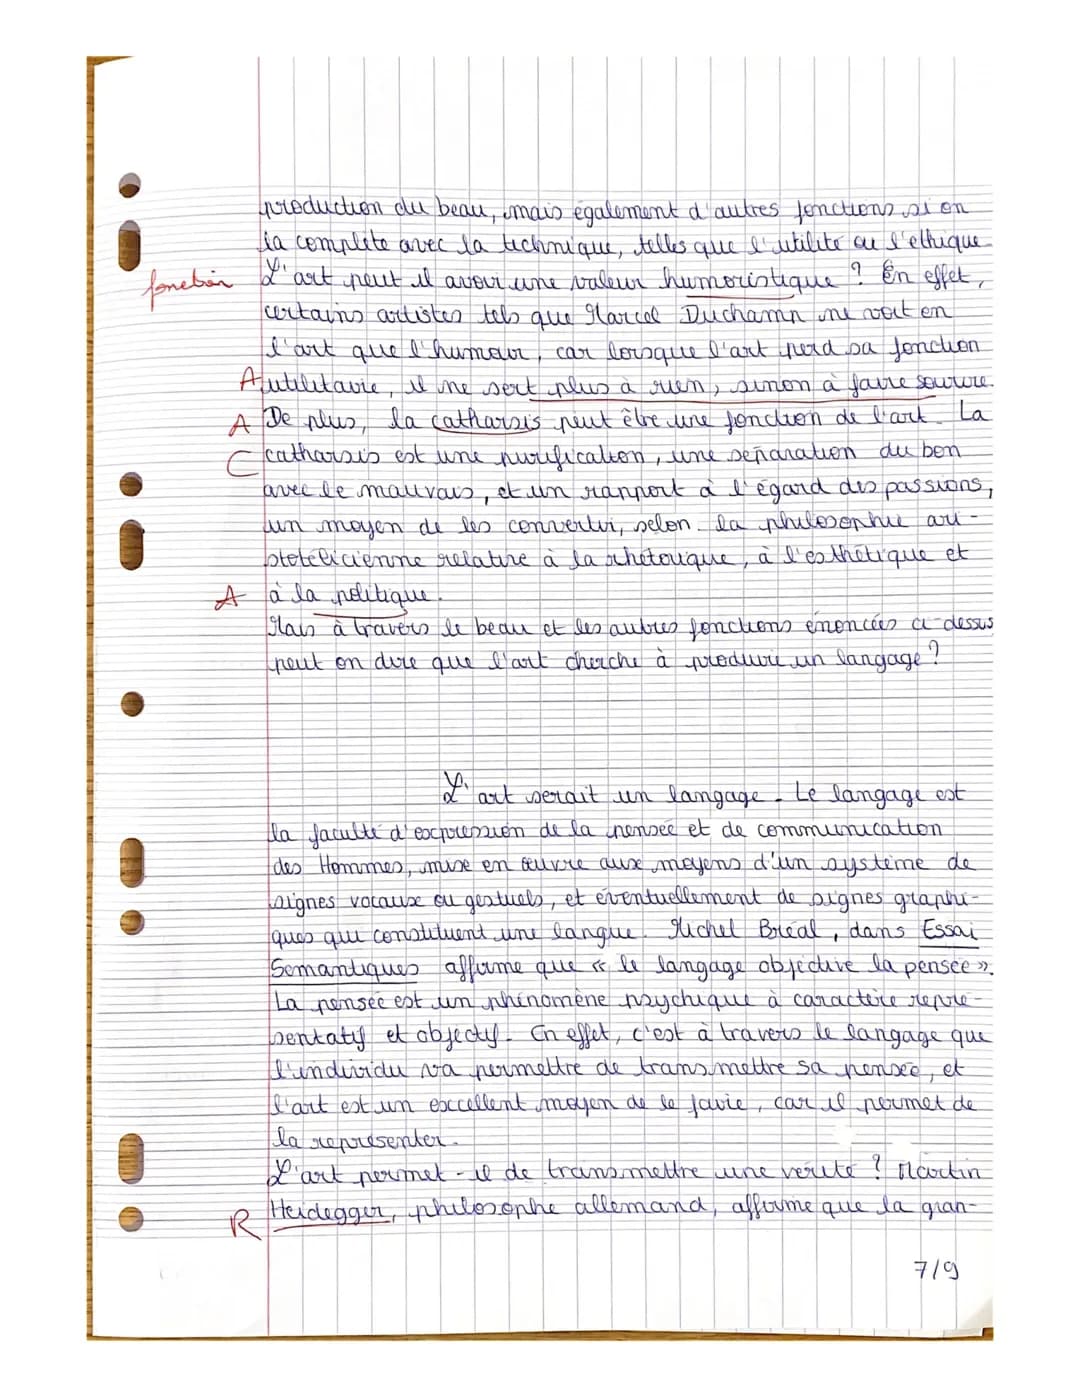 production du beau, mais également d'autres fonctions si on
la complète avec la technique, telles que l'utilité ou l'éthique.
fonction
L'art peut il avoir une valeur humoristique ? En effet,
certains artistes tels que Marcel Duchamp ne voit en
l'art que l'humour, car lorsque l'art perd sa fonction
A utilitaire, il ne sert plus à rien, sinon à faire sourire.
A De plus, la catharsis peut être une fonction de l'art. La
C catharsis est une purification, une séparation du bon
avec le mauvais, et un rapport à l'égard des passions,
un moyen de les convertir, selon la philosophie ari-
stotélicienne relative à la rhétorique, à l'esthétique et
A à la politique.
Mais à travers le beau et les autres fonctions énoncées ci-dessus
peut on dire que l'art cherche à produire un langage ?
L'art serait un langage. Le langage est
la faculté d'expression de la pensée et de communication
des Hommes, mise en œuvre aux moyens d'un système de
signes vocaux ou gestuels, et éventuellement de signes graphi-
ques qui constituent une langue. Michel Bréal, dans Essai
Semantiques affirme que « le langage objective la pensée ».
La pensée est un phénomène psychique à caractère repré-
sentatif et objectif. En effet, c'est à travers le langage que
l'individu va permettre de transmettre sa pensée, et
l'art est un excellent moyen de le faire, car il permet de
la représenter.
L'art permet-il de transmettre une vérité ? Martin
R Heidegger, philosophe allemand, affirme que la gran-
7/9